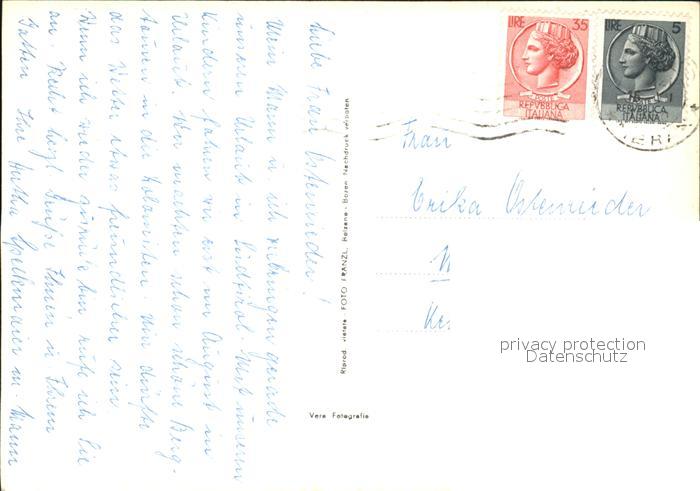 Liebe Frau Ostenrieder!
Mein Mann u. ich verbringen gerade
unseren Urlaub in Südtirol. Mit unseren
Kindern fahren wir erst im August in
Urlaub. Wir machten schon schöne Berg-
touren in die Dolomiten. Nur dürfte
das Wetter etwas freundlicher sein.
Wenn ich wieder zurück bin rufe ich Sie
an. Recht herzl. Grüße Ihnen u. Ihrem
Gatten Ihre Hertha u. Mann
Riprod. vietata FOTO FRANZL, Bolzano - Bozen Nachdruck verboten
Vera Fotografia
LIRE 35
POSTE
REPVBBLICA
ITALIANA
LIRE 5
REPVBBLICA
ITALIANA
Frau
Erika Ostenrieder
privacy protection
Datenschutz